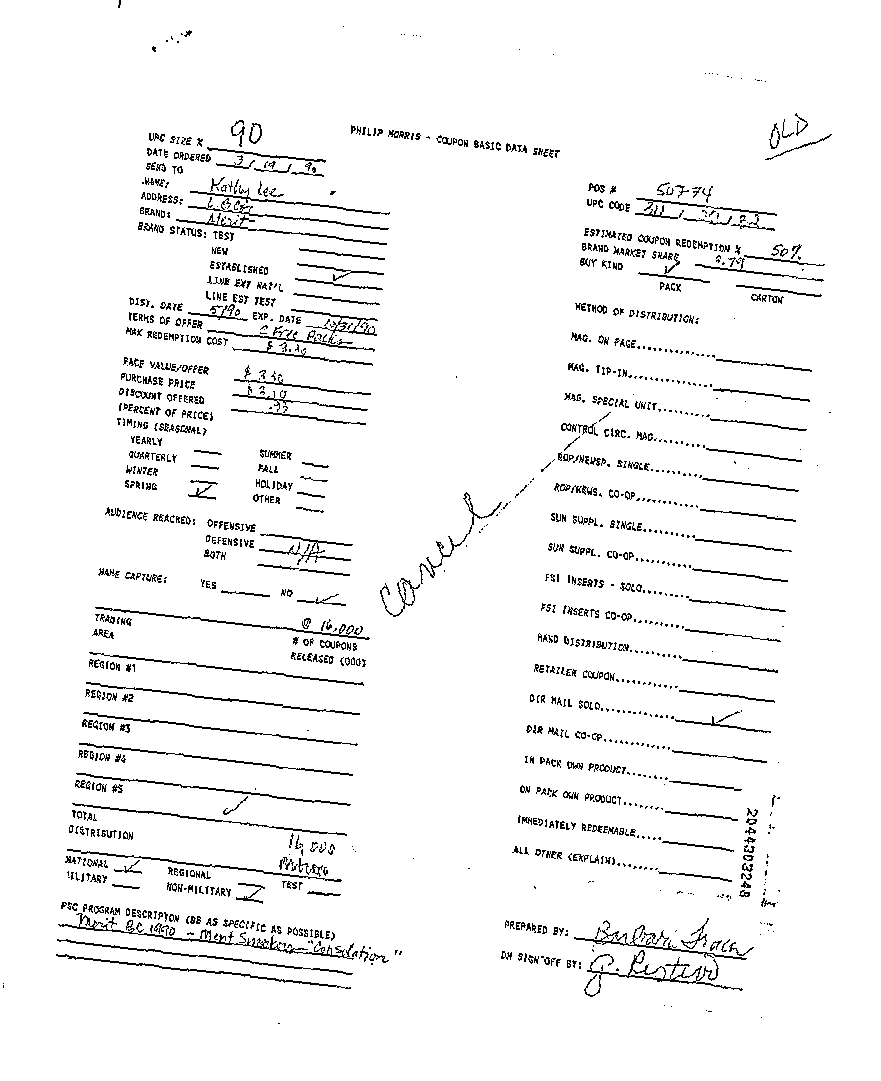 OLD
PHILIP MORRIS - COUPON BASIC DATA SHEET
UPC SIZE % 90
DATE ORDERED 3/19/90
SEND TO
NAME: Kathy Lee
ADDRESS:
BRAND: Merit
BRAND STATUS: TEST
NEW
ESTABLISHED ✓
LINE EXT NAT'L
LINE EST TEST
DIST. DATE 5/90 EXP. DATE 10/31/90
TERMS OF OFFER Free Packs
MAX REDEMPTION COST
FACE VALUE/OFFER
PURCHASE PRICE
DISCOUNT OFFERED
(PERCENT OF PRICE)
TIMING (SEASONAL)
YEARLY SUMMER
QUARTERLY FALL
WINTER HOLIDAY
SPRING ✓ OTHER
AUDIENCE REACHED: OFFENSIVE
DEFENSIVE N/A
BOTH
NAME CAPTURE: YES NO ✓
TRADING @ 16,000
AREA # OF COUPONS
RELEASED (000)
REGION #1
REGION #2
REGION #3
REGION #4
REGION #5
✓
TOTAL
DISTRIBUTION 16,000
NATIONAL ✓ REGIONAL
MILITARY NON-MILITARY ✓ TEST
PSC PROGRAM DESCRIPTON (BE AS SPECIFIC AS POSSIBLE)
Merit 1990 - Merit Smokers "Consolation"
Cancel
POS # 50774
UPC CODE
ESTIMATED COUPON REDEMPTION % 50%
BRAND MARKET SHARE 3.79
BUY KIND ✓
PACK CARTON
METHOD OF DISTRIBUTION:
MAG. ON PAGE
MAG. TIP-IN
MAG. SPECIAL UNIT
CONTROL CIRC. MAG
ROP/NEWSP. SINGLE
ROP/NEWS. CO-OP
SUN SUPPL. SINGLE
SUN SUPPL. CO-OP
FSI INSERTS - SOLO
FSI INSERTS CO-OP
HAND DISTRIBUTION
RETAILER COUPON
DIR MAIL SOLO ✓
DIR MAIL CO-OP
IN PACK OWN PRODUCT
ON PACK OWN PRODUCT
IMMEDIATELY REDEEMABLE
ALL OTHER (EXPLAIN)
2044303248
PREPARED BY: Barbara
DM SIGN-OFF BY: G.